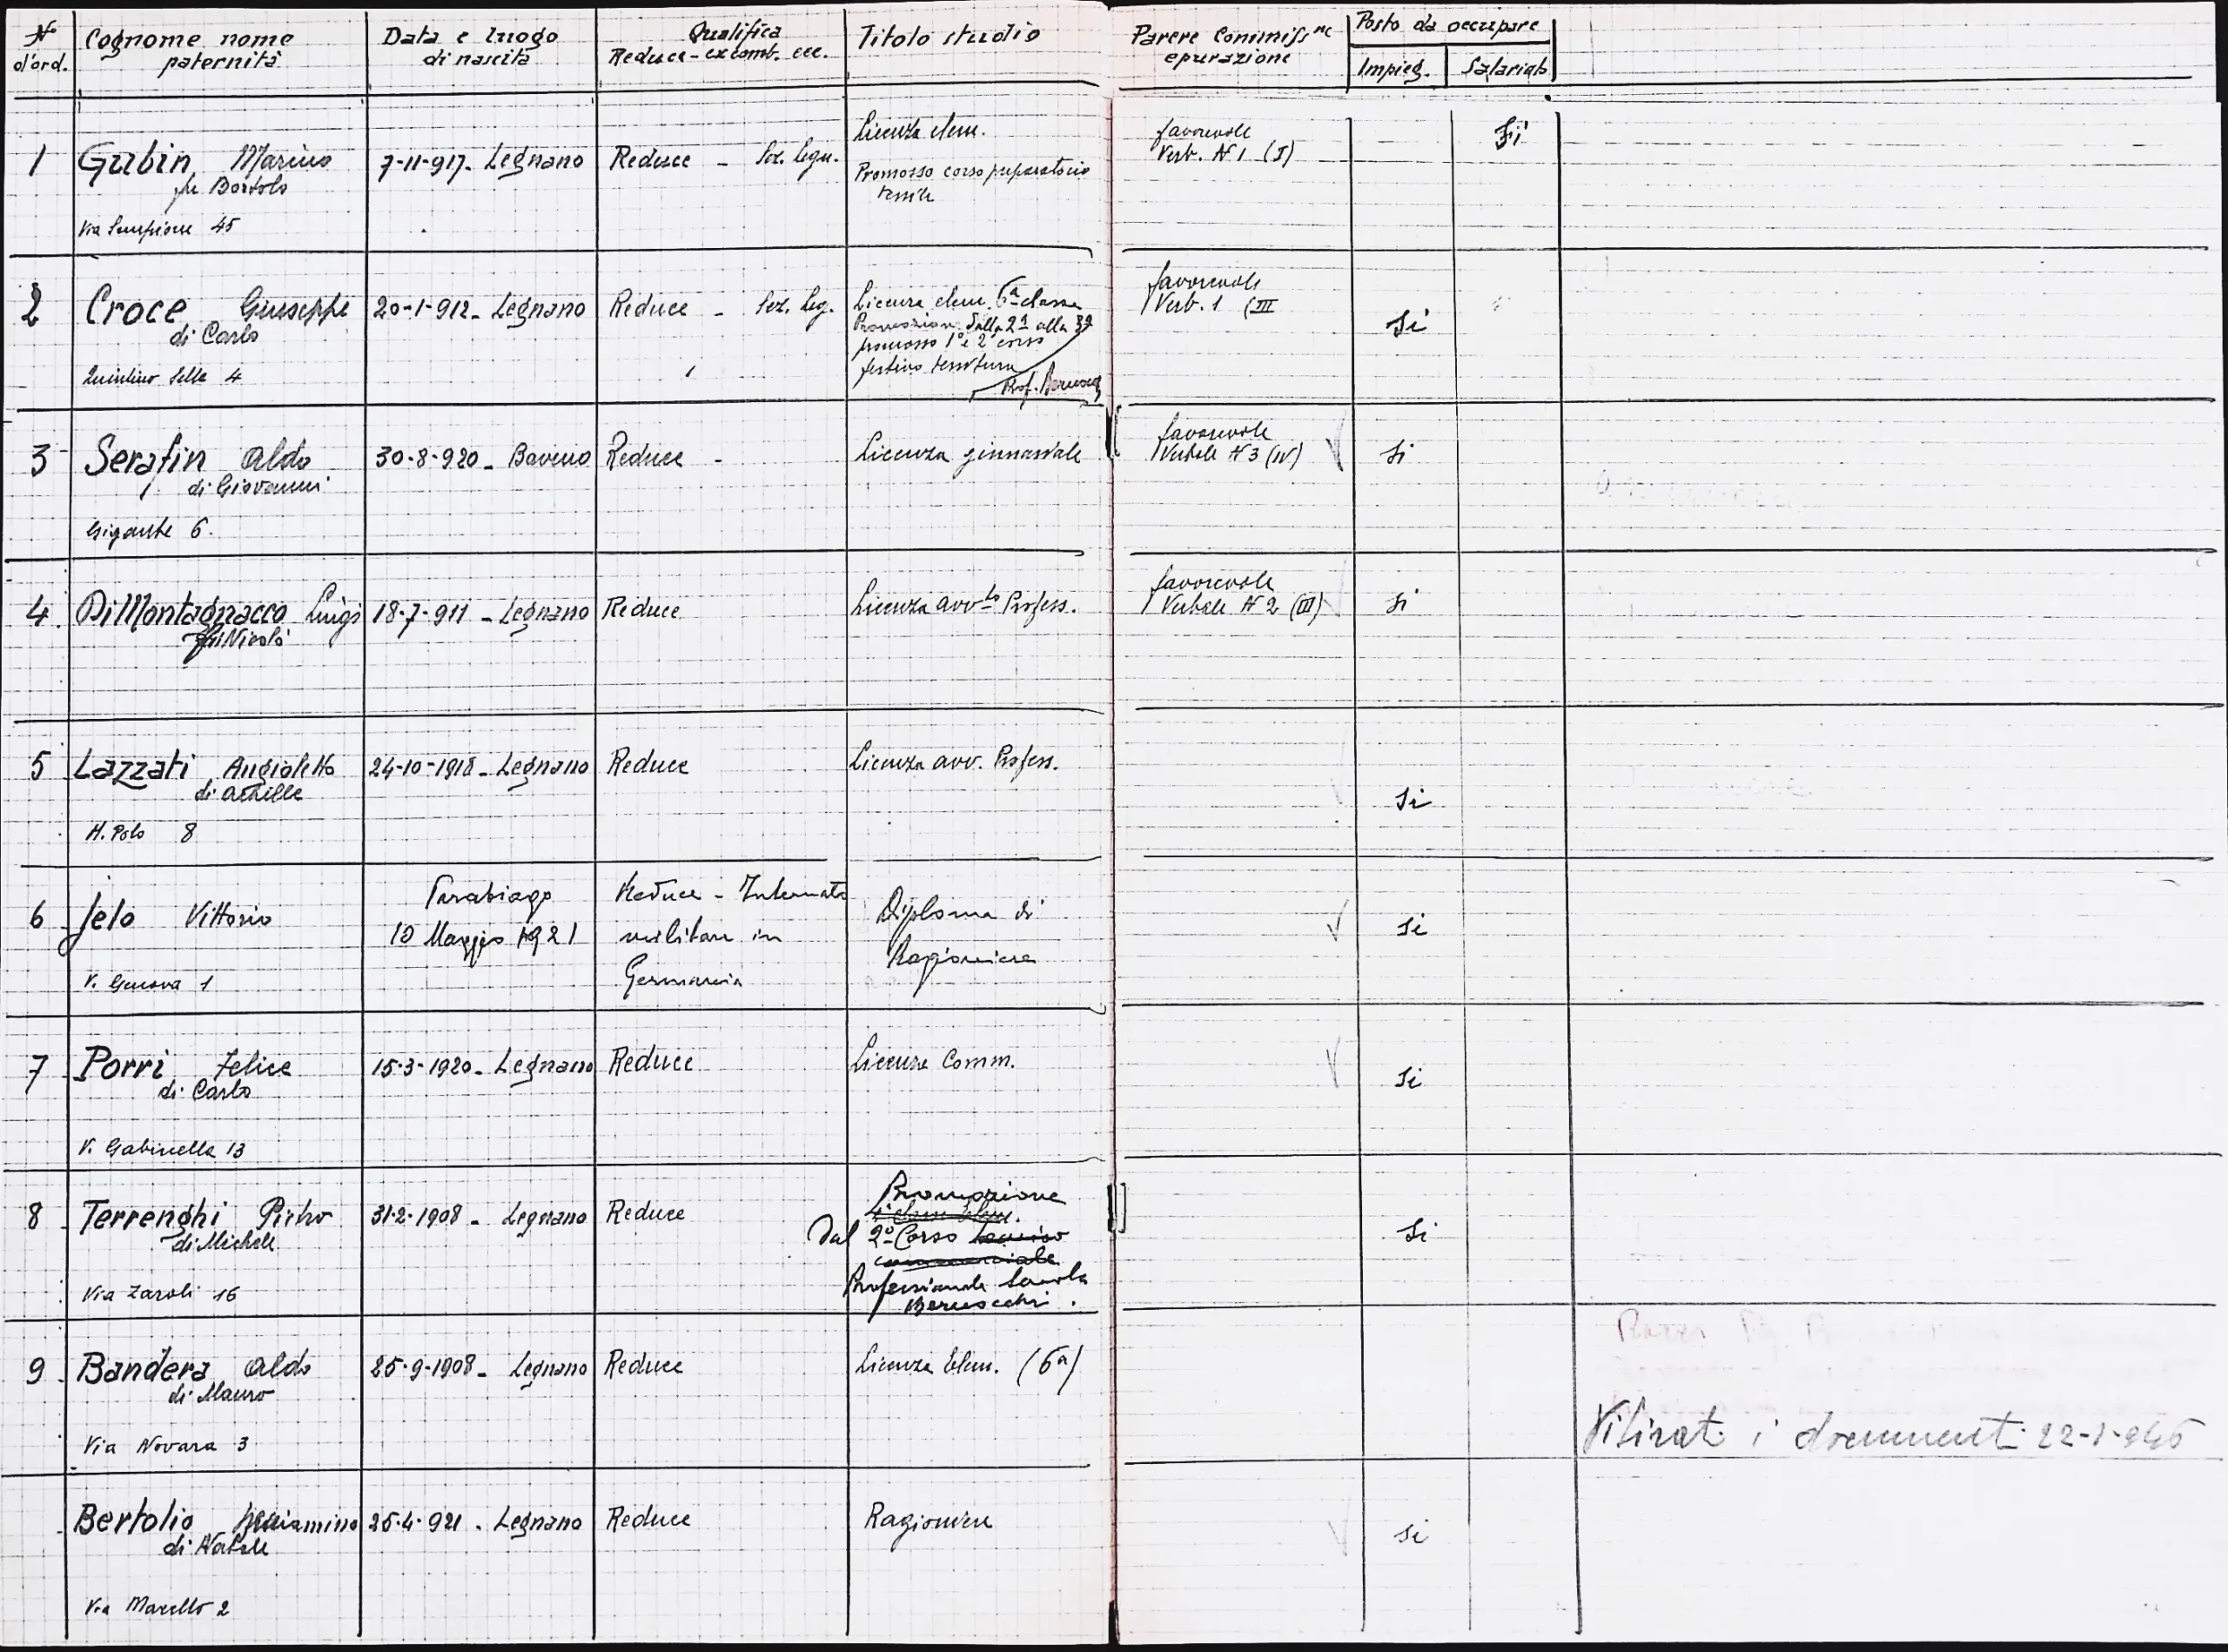 N° d'ord.
Cognome nome paternità
Data e luogo di nascita
Qualifica Reduce - ex comb. ecc.
Titolo studio
Parere Commiss ne epurazione
Posto da occupare
Impieg.
Salariato
1 Gubin Marino 7-11-917 - Legnano Reduce - Licenza elem. favorevole Si
fu Bortolo Promosso corso preparatorio Verb. N 1 (I)
tessile
Via Sempione 45
2 Croce Giuseppe 20-1-912 - Legnano Reduce - Licenza elem. 6ª classe favorevole Si
di Carlo Promozione dalla 2ª alla 3ª Verb. 1 (III
promosso 1° e 2° corso
Quintino Sella 4 festivo tessitura
Prof.
3 Serafin Aldo 30-8-920 - Baveno Reduce - Licenza ginnasiale favorevole Si
di Giovanni Verbale N 3 (IV)
Gigante 6.
4 Di Montagnacco Luigi 18-7-911 - Legnano Reduce Licenza avv.to Profess. favorevole Si
Nicolò Verbale N 2 (III)
5 Lazzati Angioletto 24-10-1918 - Legnano Reduce Licenza avv. Profess. Si
di Achille
M. Polo 8
6 Jelo Vittorio Parabiago Reduce - Internato Diploma di Si
10 Maggio 1921 militare in Ragioniere
V. Genova 1 Germania
7 Porri Felice 15-3-1920 - Legnano Reduce Licenza Comm. Si
di Carlo
V. Gabinella 13
8 Terrenghi Pietro 31-2-1908 - Legnano Reduce Promozione Si
di Michele Dal 2° Corso
commerciale
Via Zaroli 16 Professionale Scuola
Bernocchi.
9 Bandera Aldo 25-9-1908 - Legnano Reduce Licenza Elem. (6ª)
di Mauro
Via Novara 3 Ritirati i documenti 22-1-946
Bertolio Beniamino 25-4-921 - Legnano Reduce Ragioniere Si
di Natale
Via Marcello 2